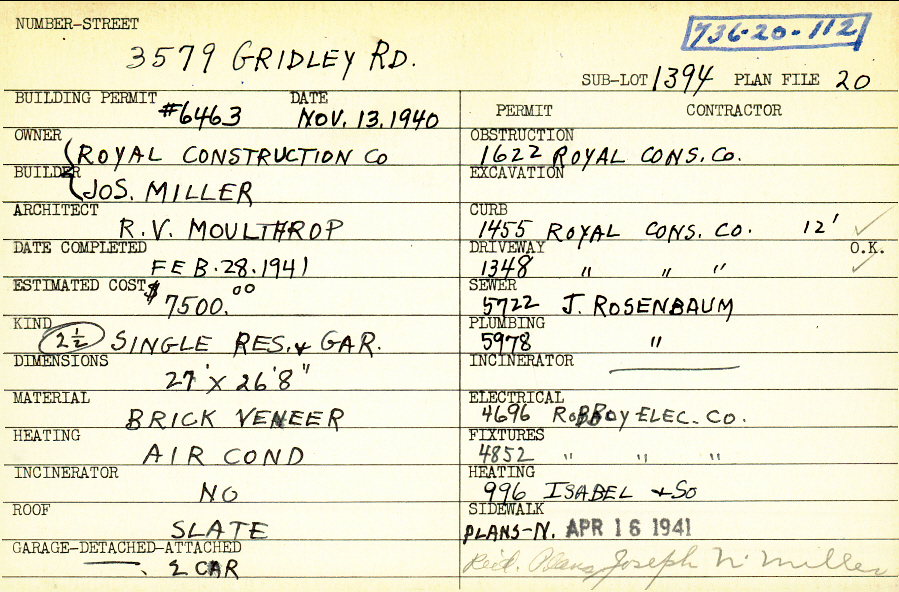 NUMBER-STREET
736-20-112
3579 GRIDLEY RD.
SUB-LOT 1394 PLAN FILE 20
BUILDING PERMIT DATE
#6463 NOV. 13. 1940
OWNER
ROYAL CONSTRUCTION CO
BUILDER
JOS. MILLER
ARCHITECT
R.V. MOULTHROP
DATE COMPLETED
FEB. 28. 1941
ESTIMATED COST
$7500.00
KIND
2½ SINGLE RES. & GAR.
DIMENSIONS
27' X 26'8"
MATERIAL
BRICK VENEER
HEATING
AIR COND
INCINERATOR
NO
ROOF
SLATE
GARAGE-DETACHED-ATTACHED
2 CAR
PERMIT CONTRACTOR
OBSTRUCTION
1622 ROYAL CONS. CO.
EXCAVATION
CURB
1455 ROYAL CONS. CO. 12'
DRIVEWAY O.K.
1348 " " "
SEWER
5722 J. ROSENBAUM
PLUMBING
5978 "
INCINERATOR
ELECTRICAL
4696 ELEC. CO.
FIXTURES
4852 " " "
HEATING
996 ISABEL & SO
SIDEWALK
PLANS-N. APR 16 1941
Recd. Plans Joseph N. Miller